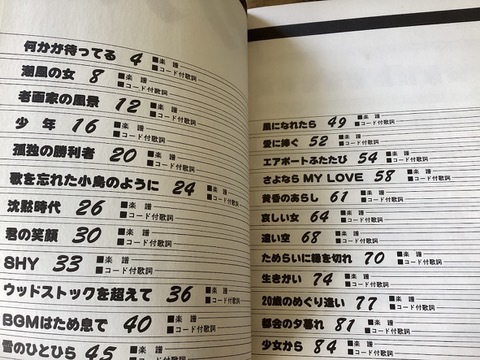 何かが待ってる 4 ■楽譜 ■コード付歌詞
潮風の女 8 ■楽譜 ■コード付歌詞
老画家の風景 12 ■楽譜 ■コード付歌詞
少年 16 ■楽譜 ■コード付歌詞
孤独の勝利者 20 ■楽譜 ■コード付歌詞
歌を忘れた小鳥のように 24 ■楽譜 ■コード付歌詞
沈黙時代 26 ■楽譜 ■コード付歌詞
君の笑顔 30 ■楽譜 ■コード付歌詞
SHY 33 ■楽譜 ■コード付歌詞
ウッドストックを超えて 36 ■楽譜 ■コード付歌詞
BGMはため息で 40 ■楽譜 ■コード付歌詞
雪のひとひら 45 ■楽譜 ■コード付歌詞
風になれたら 49 ■楽譜 ■コード付歌詞
愛に捧ぐ 52 ■楽譜 ■コード付歌詞
エアポートふたたび 54 ■楽譜 ■コード付歌詞
さよなら MY LOVE 58 ■楽譜 ■コード付歌詞
黄昏のあらし 61 ■楽譜 ■コード付歌詞
哀しい女 64 ■楽譜 ■コード付歌詞
遠い空 68 ■楽譜 ■コード付歌詞
ためらいに縁を切れ 70 ■楽譜 ■コード付歌詞
生きがい 74 ■楽譜 ■コード付歌詞
20歳のめぐり逢い 77 ■楽譜 ■コード付歌詞
都会の夕暮れ 81 ■楽譜 ■コード付歌詞
少女から 84 ■楽譜 ■コード付歌詞